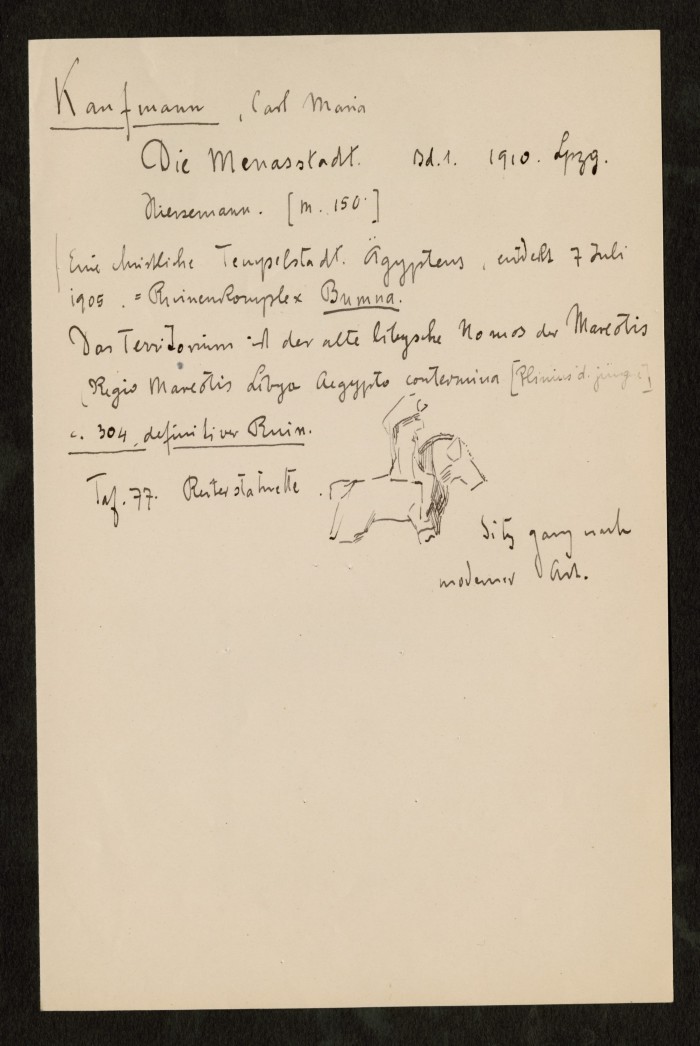 Kaufmann, Carl Maria
Die Menasstadt. Bd.1. 1910. Lpzg.
Hiersemann. [M. 150.]
Eine christliche Tempelstadt. Ägyptens, entdeckt 7 Juli
1905. = Ruinenkomplex Bumna.
Das Territorium ist der alte libysche Nomos der Mareotis
(Regio Mareotis Libya Aegypto contermina [Plinius d. jüng.],
c. 304, definitiver Ruin.
Taf. 77. Reiterstatuette.
Sitz ganz nach
moderner Art.